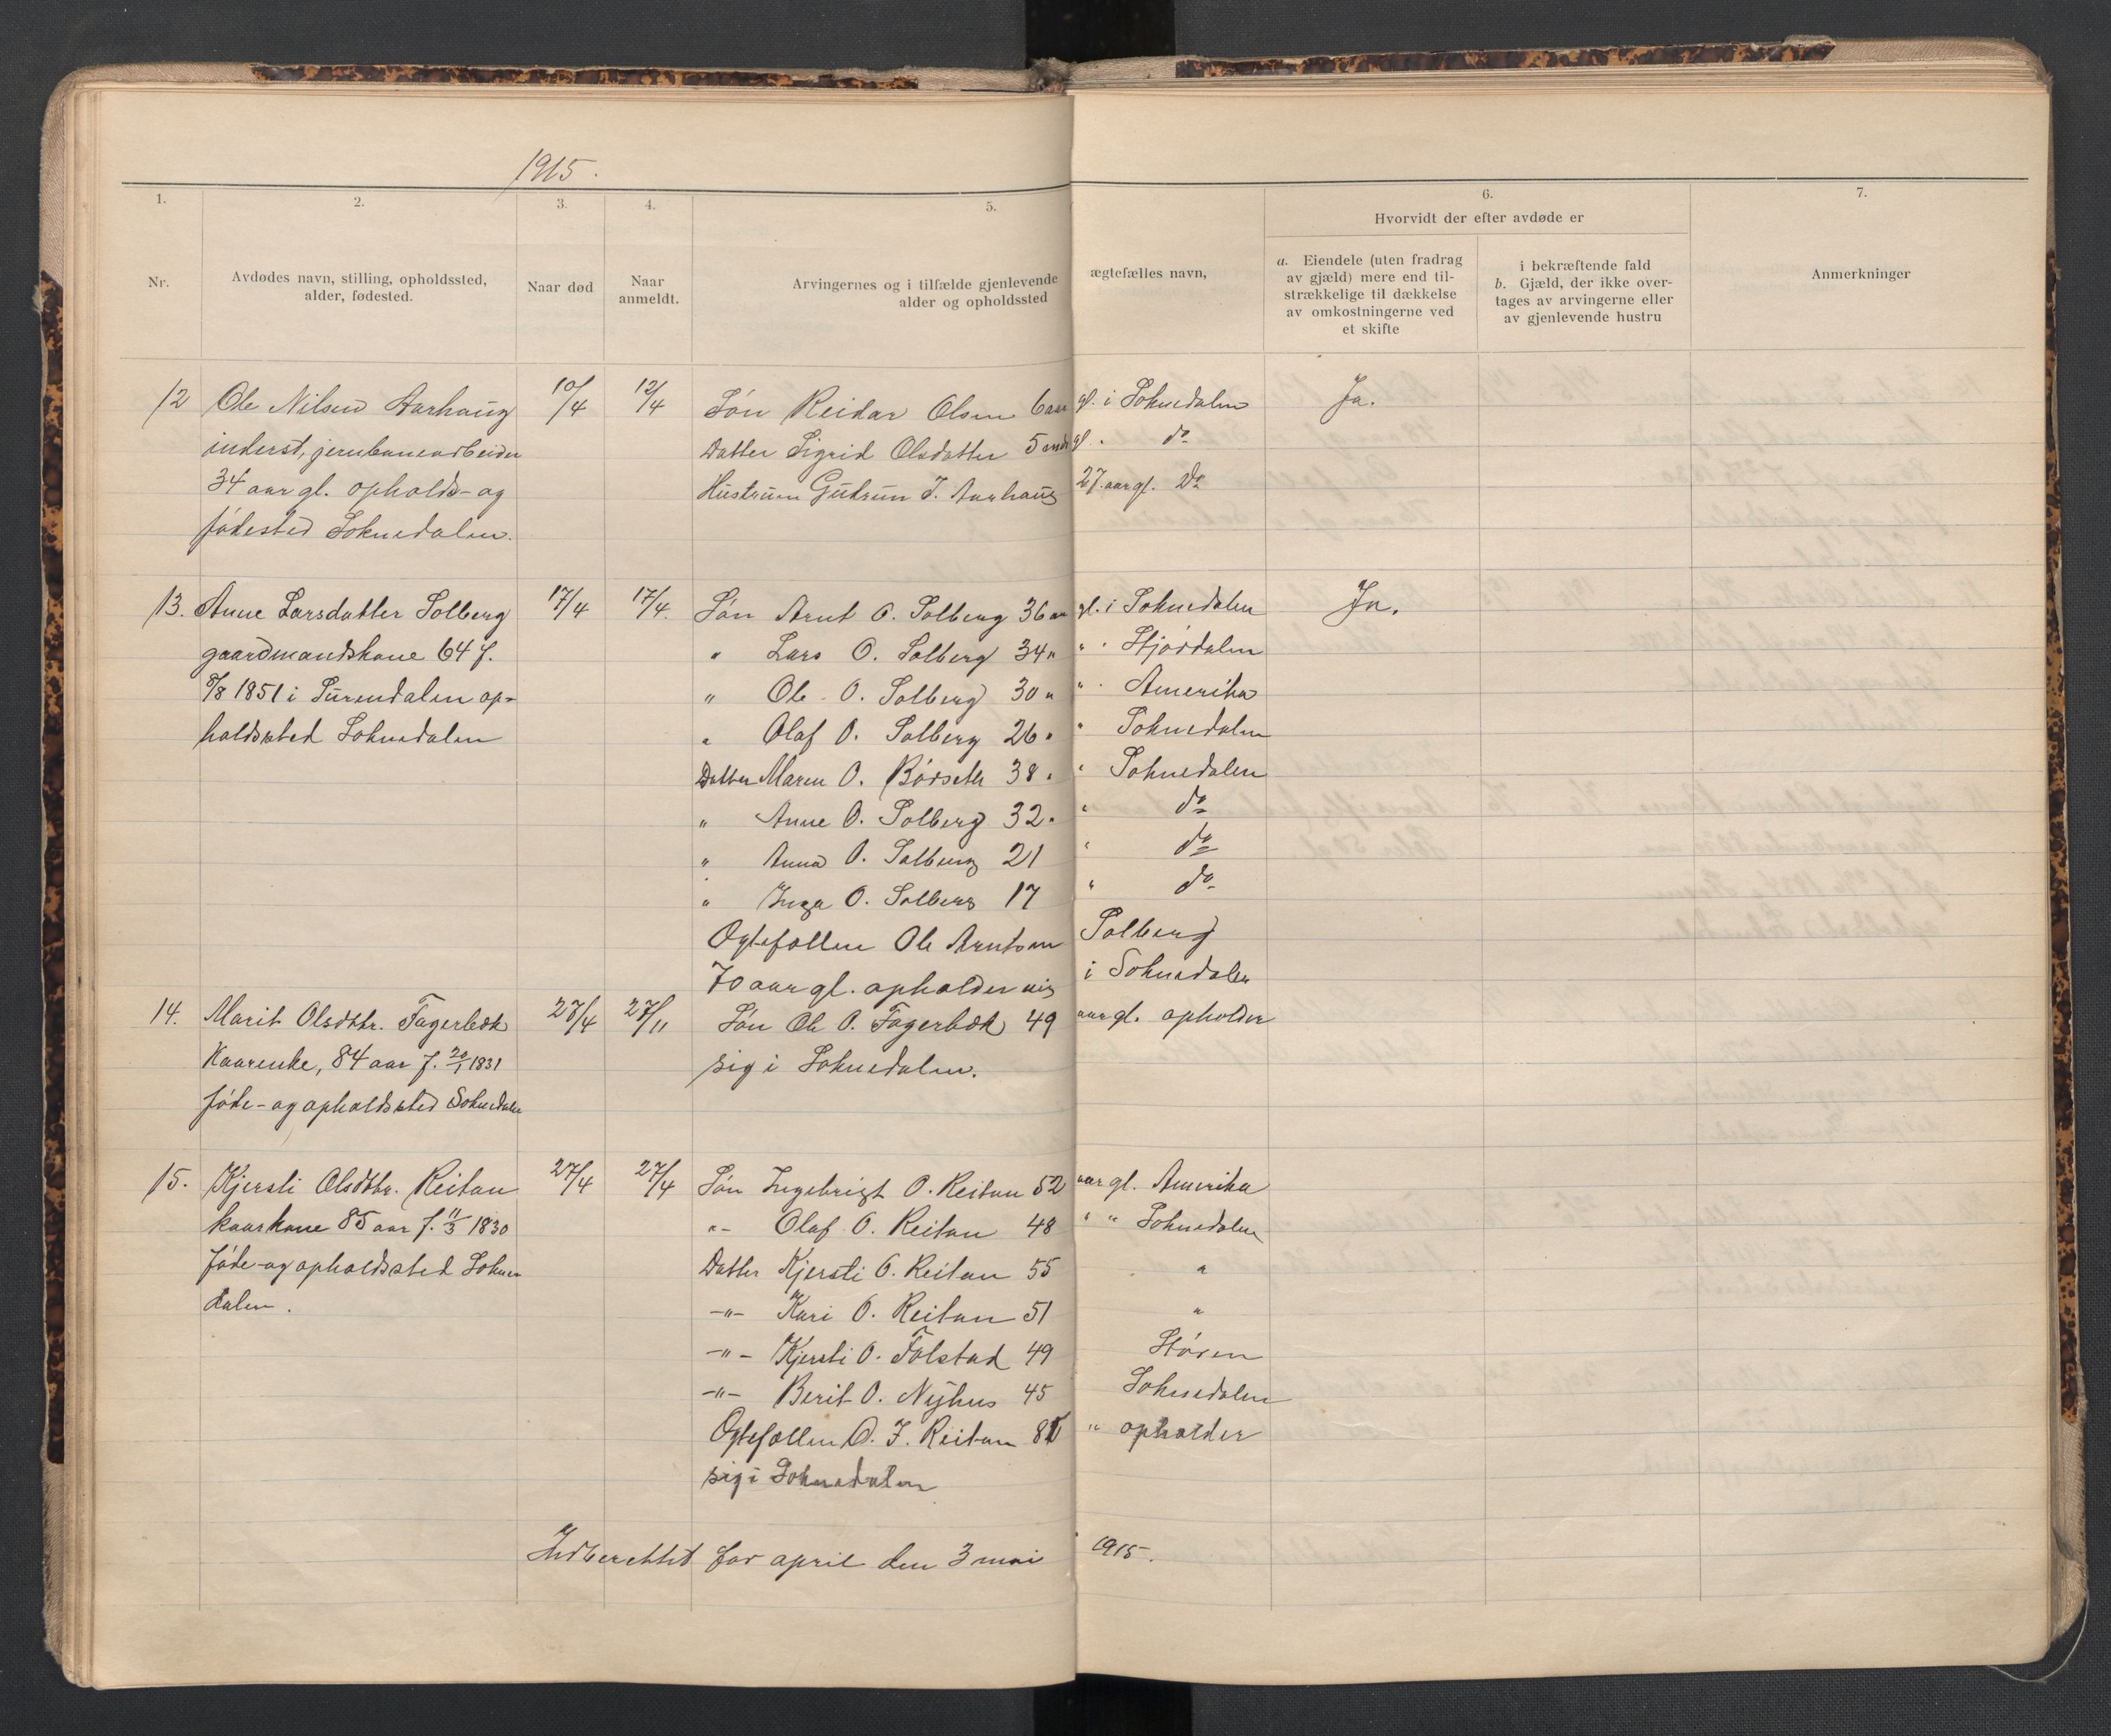 1915.
1. 2. 3. 4. 5. 6. 7.
Nr.
Avdødes navn, stilling, opholdssted,
alder, fødested.
Naar død
Naar
anmeldt.
Arvingernes og i tilfælde gjenlevende ægtefælles navn,
alder og opholdssted
Hvorvidt der efter avdøde er
a. Eiendele (uten fradrag
av gjæld) mere end til-
strækkelige til dækkelse
av omkostningerne ved
et skifte
i bekræftende fald
b. Gjæld, der ikke over-
tages av arvingerne eller
av gjenlevende hustru
Anmerkninger
12 Ole Nilsen Aarhaug 10/4 12/4 Søn Reidar Olsen 6 aar gl. i Soknedalen Ja.
inderst, jernbanearbeider Datter Sigrid Olsdatter 5 mdr gl. do
34 aar gl. opholds- og Hustruen Gudrun J. Aarhaug 27 aar gl. Do
fødested Soknedalen.
13. Anne Larsdatter Solberg 17/4 17/4. Søn Arnt O. Solberg 36 aar gl. i Soknedalen Ja.
gaardmandskone 64 f. " Lars O. Solberg 34 " " " Stjørdalen
8/8 1851 i Surendalen op- " Ole O. Solberg 30 " " Amerika
holdssted Soknedalen " Olaf O. Solberg 26 " " Soknedalen
Datter Maren O. Børseth 38 " " Soknedalen
" Anne O. Solberg 32 " " do
" Anna O. Solberg 21 " do
" Inga O. Solberg 17 " do
Ogtefællen Ole Arntsen Solberg
70 aar gl. opholder sig i Soknedalen
14. Marit Olsdttr. Fagerbæk 27/4 27/11 Søn Ole O. Fagerbæk 49 aar gl. opholder
Kaarenke, 84 aar f. 20/1 1831 sig i Soknedalen.
føde- og opholdssted Soknedalen
15. Kjersti Olsdttr. Reitan 27/4 27/4 Søn Ingebrigt O. Reitan 52 aar gl. Amerika
kaarkone 85 aar f. 11/3 1830 "- Olaf O. Reitan 48 " " Soknedalen
føde- og opholdssted Sokne- Datter Kjersti O. Reitan 55 "
dalen. -"- Kari O. Reitan 51 "
-"- Kjersti O. Folstad 49 Støren
-"- Berit O. Nyhus 45 Soknedalen
Ogtefællen O. I. Reitan " opholder
sig i Soknedalen
Indberettet for april den 3 mai 1915.